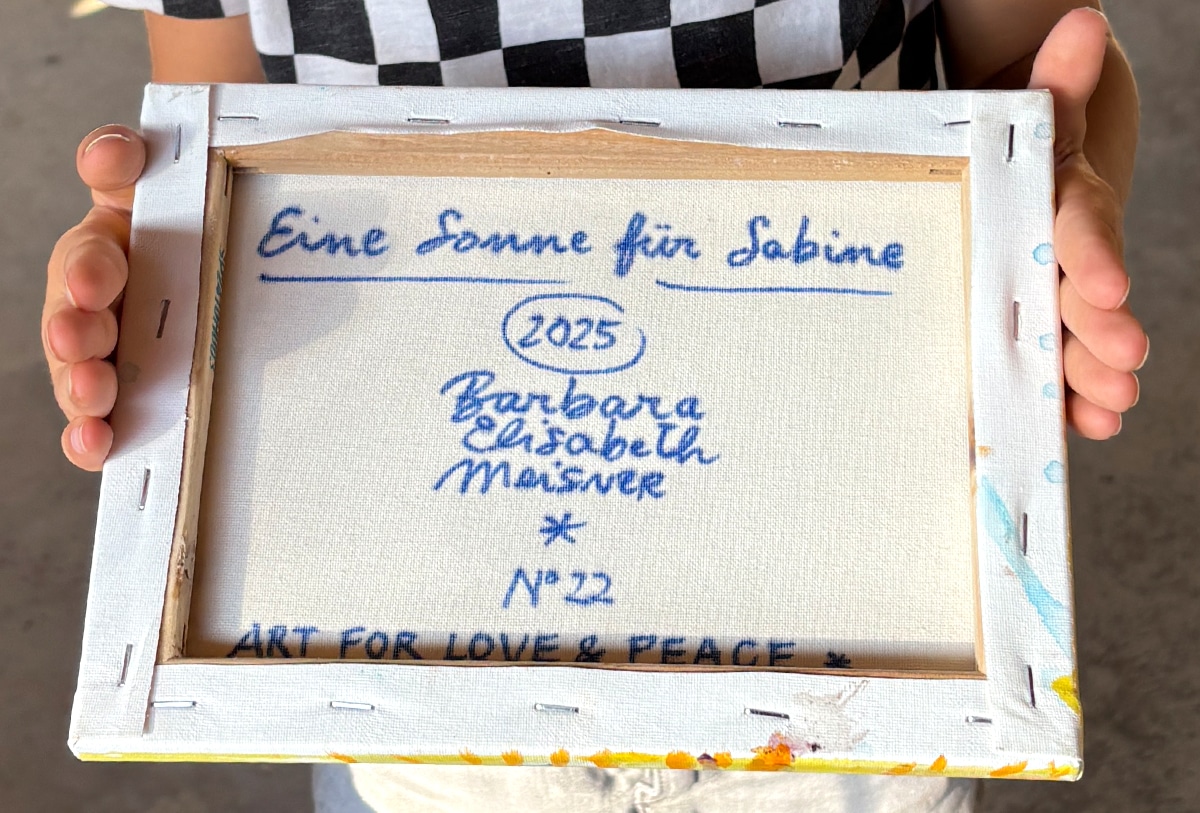 Eine Sonne für Sabine
2025
Barbara
Elisabeth
Meisner
*
Nº 22
ART FOR LOVE & PEACE *